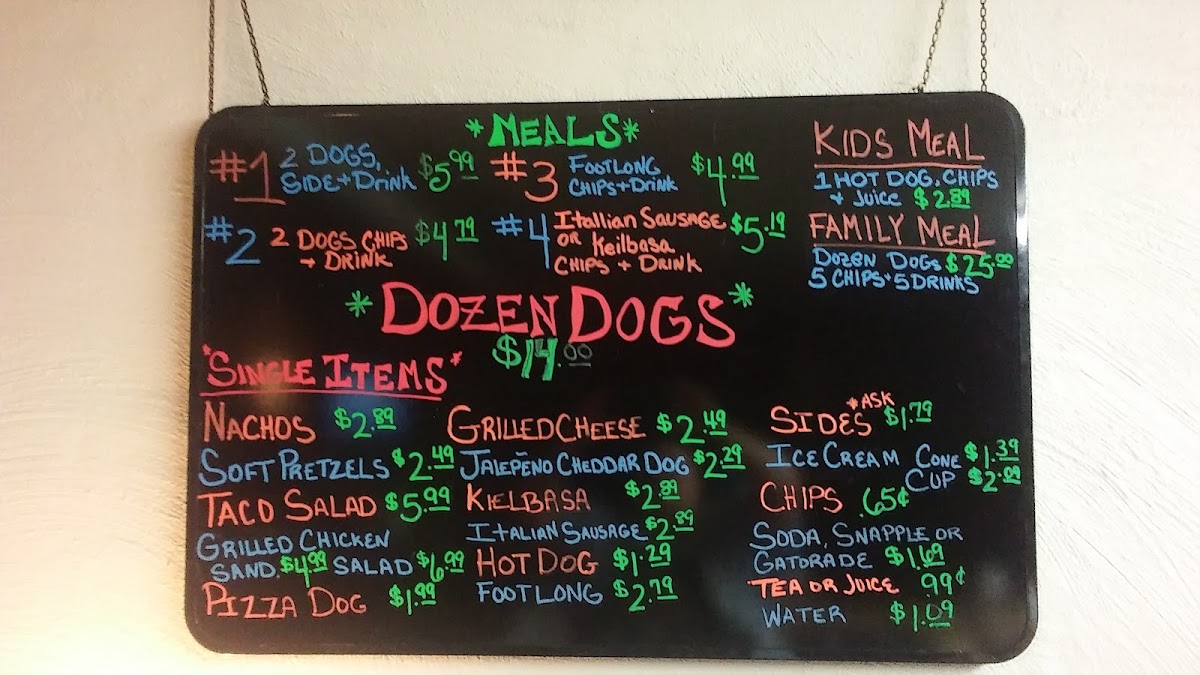 *MEALS*
#1 2 DOGS, SIDE+Drink $5.99
#2 2 DOGS CHIPS + DRINK $4.79
#3 FOOTLONG CHIPS+Drink $4.99
#4 Itallian SAUSAGE OR Keilbasa CHIPS + DRINK $5.19
KIDS MEAL
1 HOT DOG, CHIPS
+ Juice $2.89
FAMILY MEAL
Dozen DOGS $25.00
5 CHIPS+5 DRINKS
*DOZEN DOGS*
$14.00
*SINGLE ITEMS*
NACHOS $2.89
SOFT PRETZELS $2.49
TACO SALAD $5.99
GRILLED CHICKEN
SAND. $4.99 SALAD $6.99
PIZZA DOG $1.99
GRILLED CHEESE $2.49
JALEPEÑO CHEDDAR DOG $2.29
KIELBASA $2.89
ITALIAN SAUSAGE $2.89
HOT DOG $1.29
FOOT LONG $2.79
*ASK
SIDES $1.79
ICE CREAM CONE $1.39
CUP $2.09
CHIPS .65¢
SODA, SNAPPLE OR
GATORADE $1.69
TEA OR JUICE .99¢
WATER $1.09